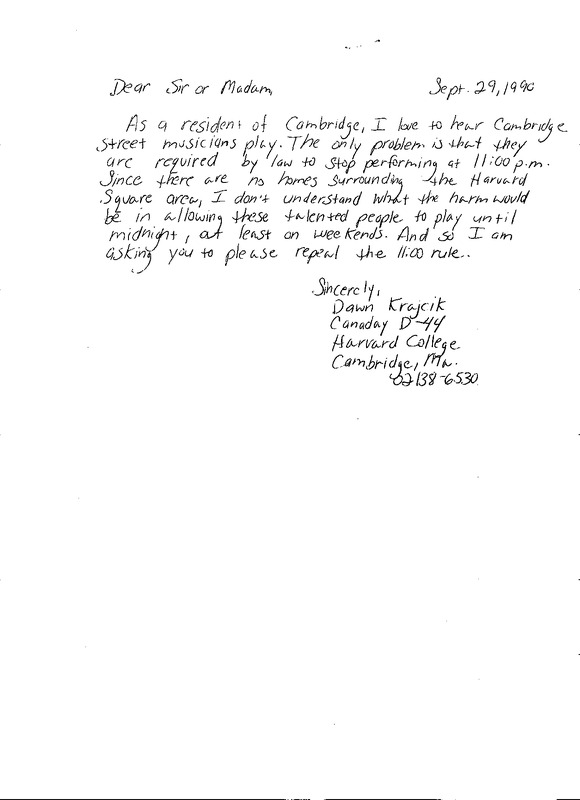 Dear Sir or Madam, Sept. 29, 1990
As a resident of Cambridge, I love to hear Cambridge
street musicians play. The only problem is that they
are required by law to stop performing at 11:00 p.m.
Since there are no homes surrounding the Harvard
Square area, I don't understand what the harm would
be in allowing these talented people to play until
midnight, at least on weekends. And so I am
asking you to please repeal the 11:00 rule..
Sincerely,
Dawn Krajcik
Canaday D-44
Harvard College
Cambridge, Ma.
02138-6530